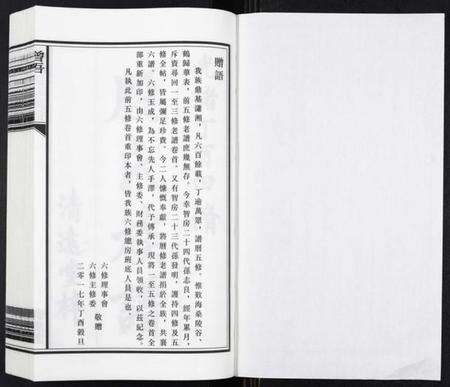 贈語
我族鼎基瀟湘,凡六百餘載,丁逾萬眾,譜曆五修。惟歎海桑陵谷,
鶴歸華表,前五修老譜庶幾無存。今幸智房二十四代孫志良,經年累月,
斥資尋回一至三修老譜卷首。又有智房二十三代孫發明,護持四修及五
修全帖,皆屬彌足珍貴。今二人慷慨奉獻,將曆修老譜捐於全族,共襄
六譜。六修玉成,為不忘先人手澤,代予傳承,現將一至五修之卷首全
部重新加印,由六修理事會、主修委、財務委執事人員領收,以茲紀念。
凡執此前五修卷首重印本者,皆我族六修總房前底人員是也。
六修理事會
六修主修委 敬贈
二零一七年丁酉穀旦